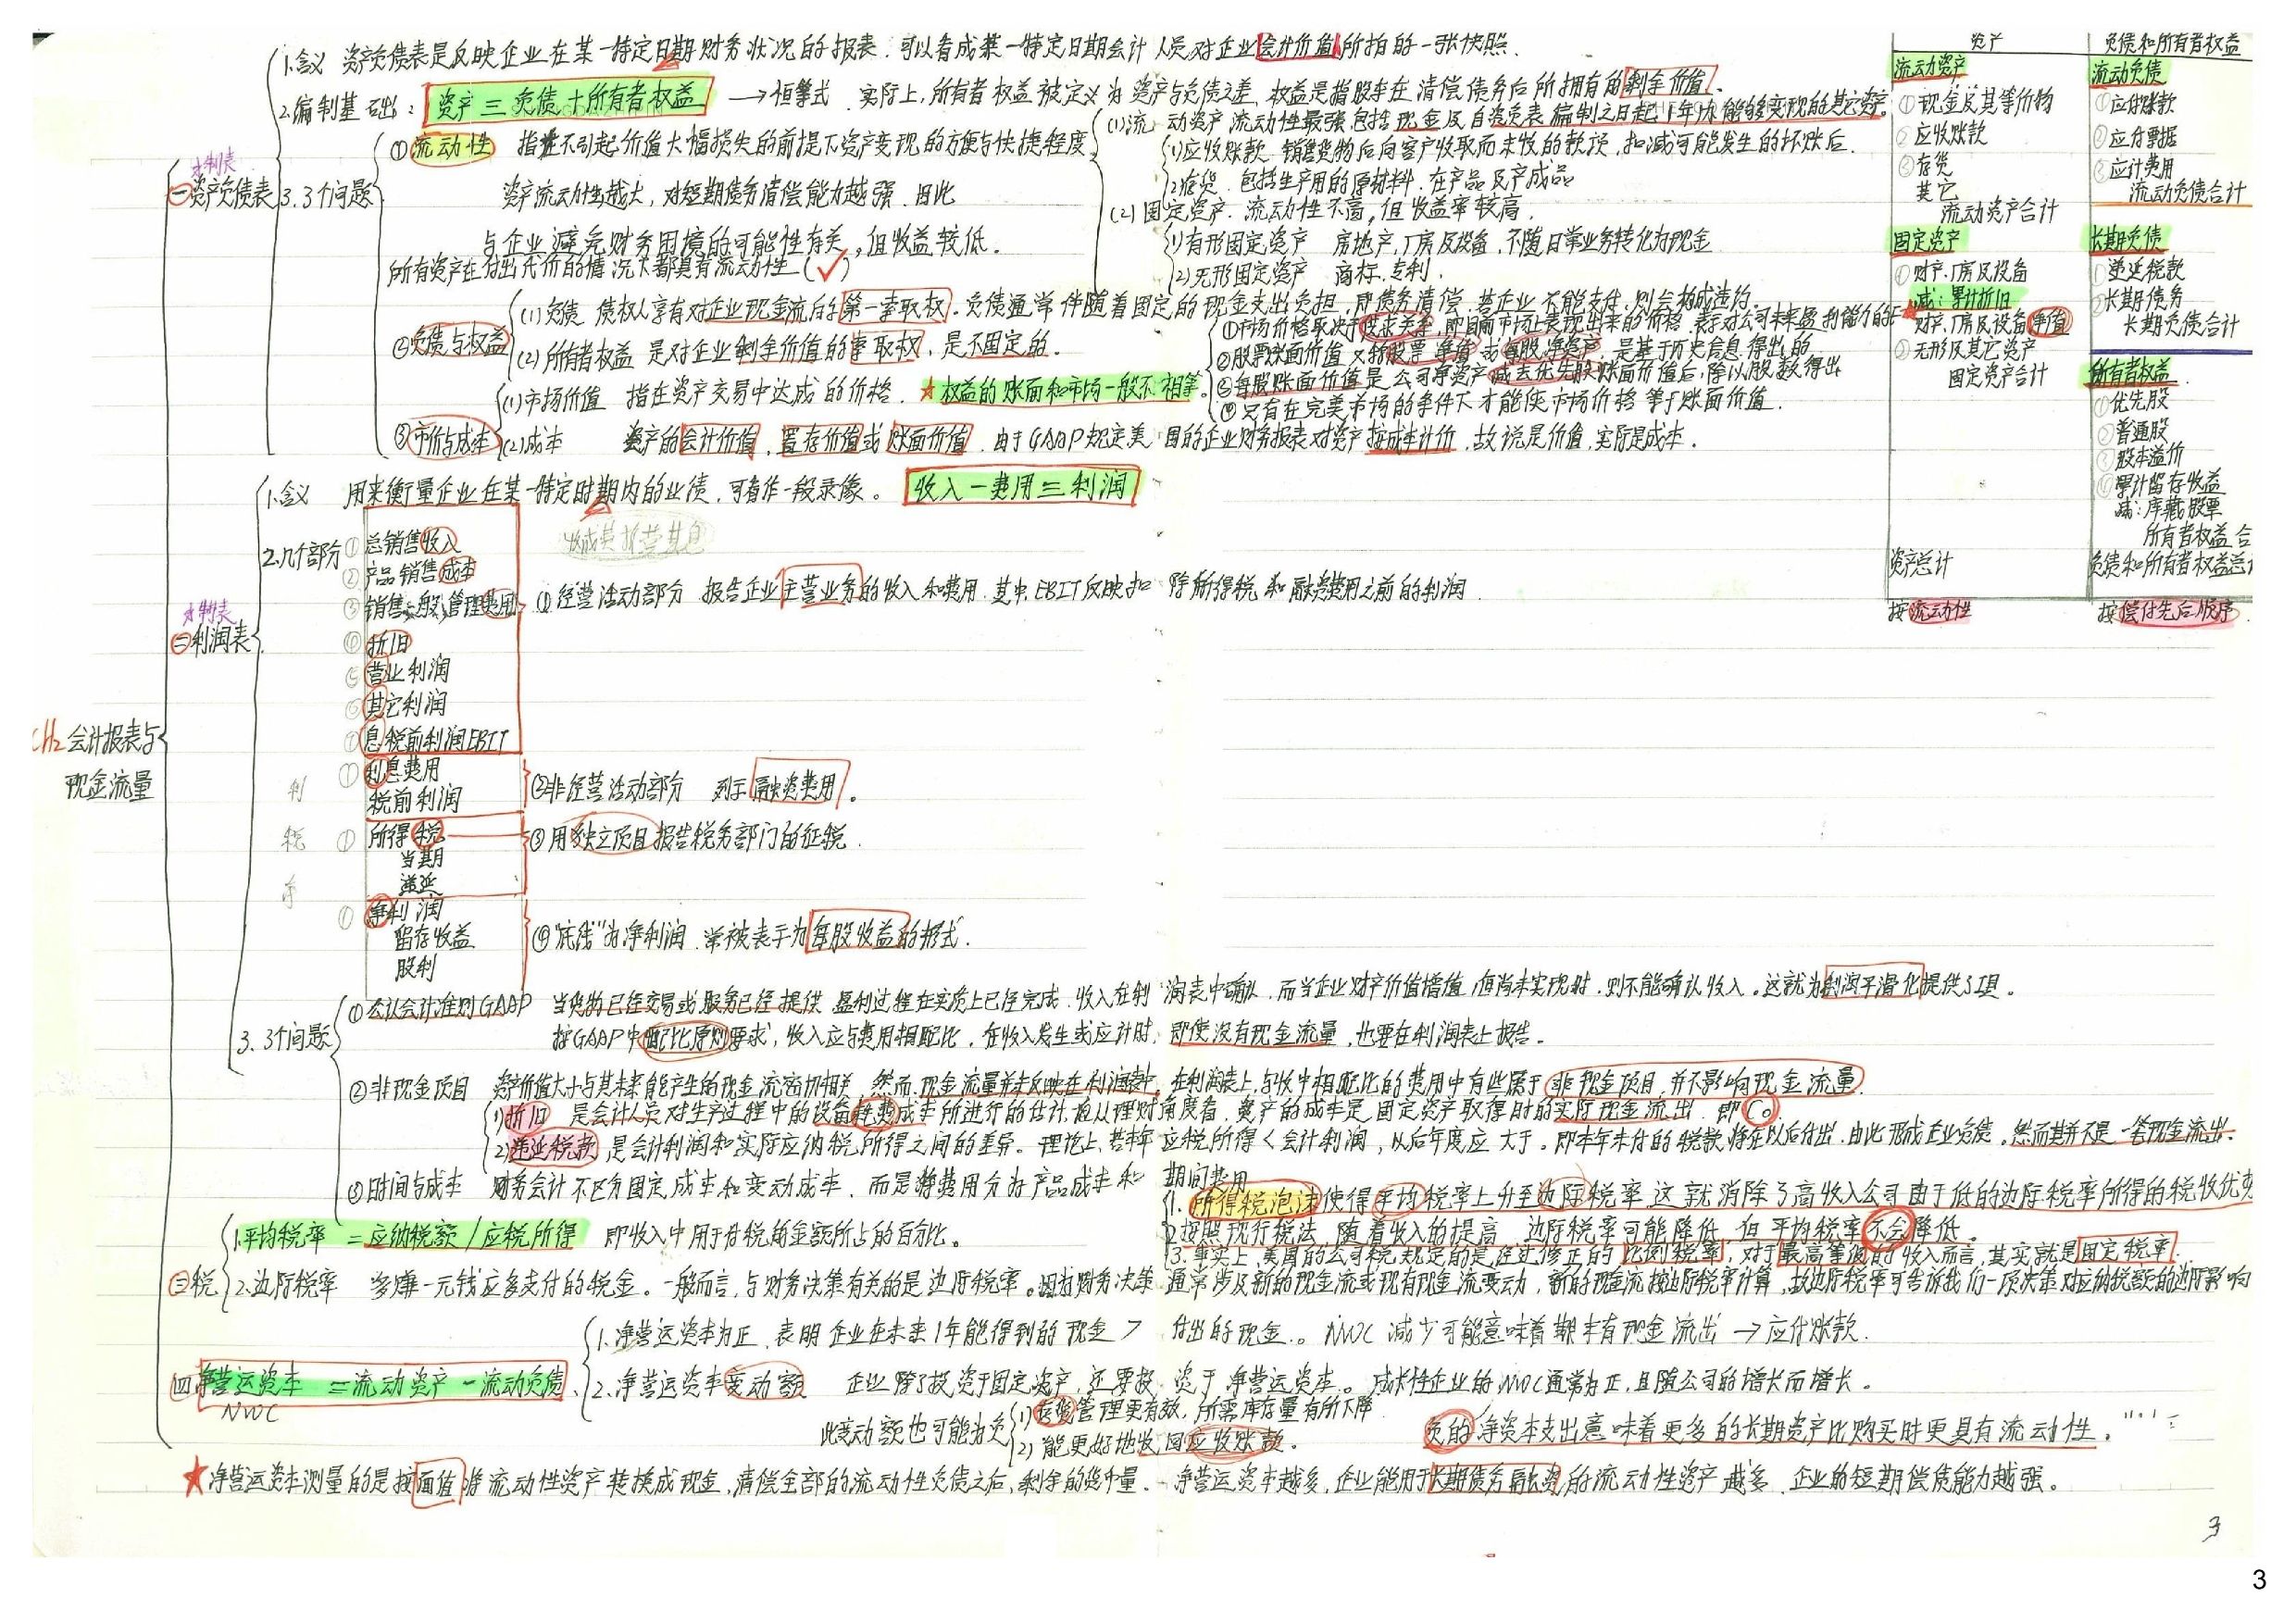 1.含义 资产负债表是反映企业在某一特定日期财务状况的报表.可以看成某一特定日期会计人员对企业会计价值所拍的一张快照.
2.编制基础: 资产≡负债+所有者权益 →恒等式 实际上,所有者权益被定义为资产与负债之差,权益是指股东在清偿债务后所拥有的剩余价值.
本制表
㊀资产负债表
3.3个问题
①流动性 指在不引起价值大幅损失的前提下资产变现的方便与快捷程度
资产流动性越大,对短期债务清偿能力越强.因此
与企业避免财务困境的可能性有关,但收益较低.
所有资产在付出代价的情况下都具有流动性(✓)
(1)流动资产 流动性最强包括现金及自资负表编制之日起1年内能够变现的其它资产.
1)应收账款 销售货物后向客户收取而未收的款项,扣减可能发生的坏账后.
2)存货.包括生产用的原材料.在产品及产成品
(2)固定资产.流动性不高,但收益率较高.
1)有形固定资产 房地产,厂房及设备,不随日常业务转化为现金
2)无形固定资产 商标.专利.
②负债与权益
(1)负债 债权人享有对企业现金流的第一索取权.负债通常伴随着固定的现金支出负担,即债务清偿.若企业不能支付,则会构成违约.
(2)所有者权益 是对企业剩余价值的索取权,是不固定的.
③市价与成本
(1)市场价值 指在资产交易中达成的价格. ★权益的账面和市场一般不相等.
①市场价格取决于供求关系,即目前市场上表现出来的价格.表示对公司未来盈利能力的
②股票账面价值又称股票净值或每股净资产.是基于历史信息得出的
③每股账面价值是公司净资产减去优先股账面价值后,除以股数得出
④只有在完美市场的条件下才能使市场价格等于账面价值.
(2)成本 资产的会计价值、置存价值或账面价值.由于GAAP规定美国的企业财务报表对资产按成本计价,故说是价值,实际是成本.
资产 负债和所有者权益
流动资产 流动负债
①现金及其等价物 ①应付账款
②应收账款 ②应付票据
③存货 ③应计费用
其它 流动负债合计
流动资产合计
固定资产 长期负债
①财产.厂房及设备 ①递延税款
减:累计折旧 ②长期债务
财产.厂房及设备净值 长期负债合计
②无形及其它资产
固定资产合计 所有者权益
①优先股
②普通股
③股本溢价
④累计留存收益
减:库藏股票
所有者权益合
资产总计 负债和所有者权益总计
按流动性 按偿付先后顺序.
本制表
㊁利润表
1.含义 用来衡量企业在某一特定时期内的业绩,可看作一段录像。 收入-费用≡利润
收成费折营其息
2.几个部分
①总销售收入
②产品销售成本
③销售、一般、管理费用
④折旧
⑤营业利润
⑥其它利润
⑦息税前利润EBIT
①经营活动部分 报告企业主营业务的收入和费用.其中,EBIT反映扣除所得税和融资费用之前的利润
CH2 会计报表与
现金流量
利 ①利息费用
税前利润
②非经营活动部分 列示融资费用.
税 ①所得税
当期
递延
③用独立项目报告税务部门的征税.
净 ①净利润
留存收益
股利
④"底线"为净利润.常被表示为每股收益的形式.
3.3个问题
①公认会计准则GAAP 当货物已经交易或服务已经提供 盈利过程在实质上已经完成.收入在利润表中确认.而当企业财产价值增值,但尚未实现时.则不能确认收入.这就为利润平滑化提供了工具.
按GAAP中配比原则要求,收入应与费用相配比.在收入发生或应计时,即使没有现金流量,也要在利润表上报告.
②非现金项目 资产价值大小与其未来能产生的现金流密切相关,然而,现金流量并未反映在利润表中.在利润表上,与收入相配比的费用中有些属于非现金项目,并不影响现金流量.
1)折旧 是会计人员对生产过程中的设备耗费成本所进行的估计.而从理财角度看 资产的成本是固定资产取得时的实际现金流出.即C0
2)递延税款 是会计利润和实际应纳税所得之间的差异.理论上,若本年应税所得<会计利润,以后年度应大于.即本年未付的税款将在以后付出.由此形成企业负债.然而其并不是一笔现金流出.
③时间与成本 财务会计不区分固定成本和变动成本,而是将费用分为产品成本和期间费用
㊂税
1.平均税率=应纳税额/应税所得 即收入中用于付税的金额所占的百分比。
1.所得税泡沫使得平均税率上升至边际税率.这就消除了高收入公司由于低的边际税率所得的税收优惠
2.按照现行税法,随着收入的提高,边际税率可能降低,但平均税率不会降低。
3.事实上,美国的公司税规定的是经过修正的比例税率,对于最高等级的收入而言,其实就是固定税率.
2.边际税率 多赚一元钱应多支付的税金。一般而言,与财务决策有关的是边际税率.因为财务决策通常涉及新的现金流或现有现金流变动,新的现金流按边际税率计算,故边际税率可告诉我们一项决策对应纳税额的边际影响
㊃净营运资本=流动资产-流动负债
NWC
1.净营运资本为正.表明企业在未来1年能得到的现金>付出的现金.。NWC减少可能意味着期末有现金流出→应付账款.
2.净营运资本变动额 企业除了投资于固定资产,还要投资于净营运资本。成长性企业的NWC通常为正,且随公司的增长而增长。
此变动额也可能为负
1)存货管理更有效,所需库存量有所下降
2)能更好地收回应收账款.
负的净资本支出意味着更多的长期资产比购买时更具有流动性.
★净营运资本测量的是按面值将流动性资产转换成现金,清偿全部的流动性负债之后,剩余的货币量.净营运资本越多,企业能用于长期债务融资的流动性资产越多.企业的短期偿债能力越强。
3
3